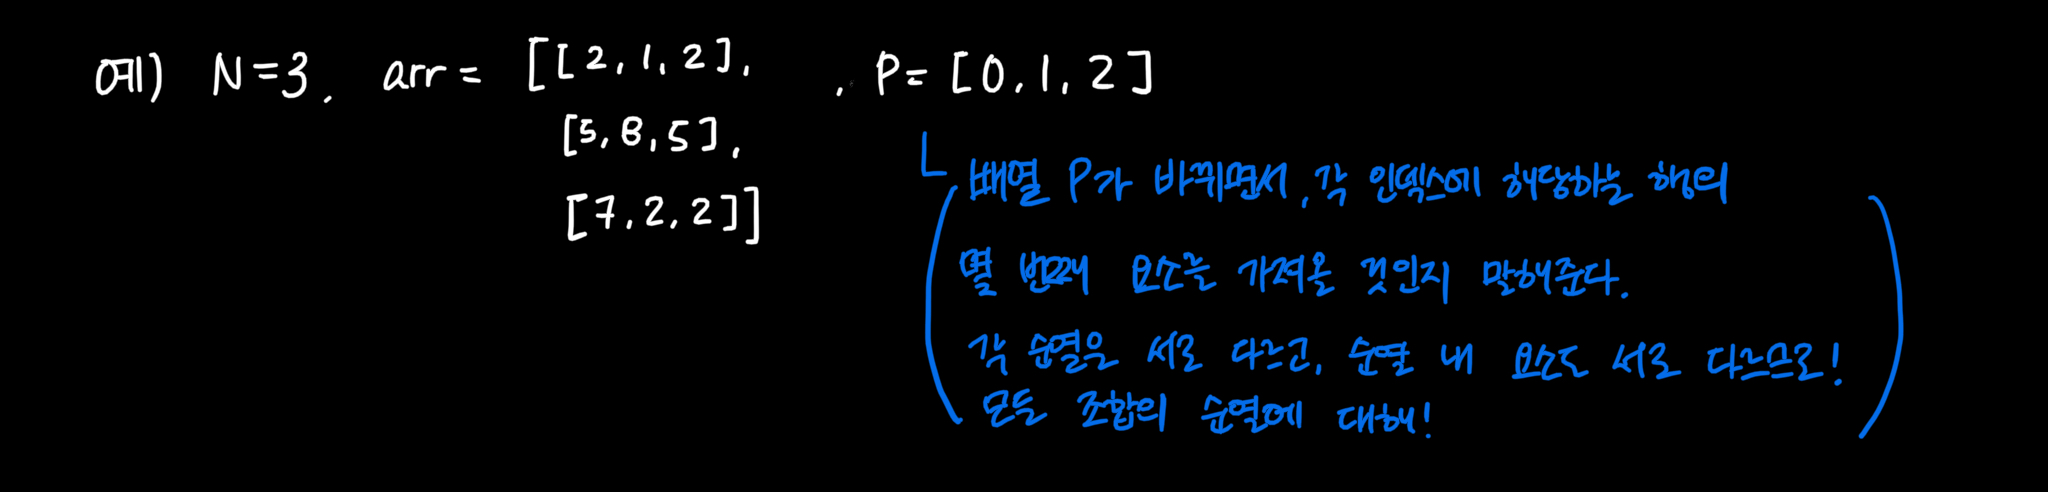 예) N=3, arr = [[2,1,2], , P= [0,1,2]
[5,8,5],
[7,2,2]]
배열 P가 바뀌면서, 각 인덱스에 해당하는 행의
몇 번째 요소를 가져올 것인지 말해준다.
각 순열은 서로 다르고, 순열 내 요소도 서로 다르므로!
모든 조합의 순열에 대해!